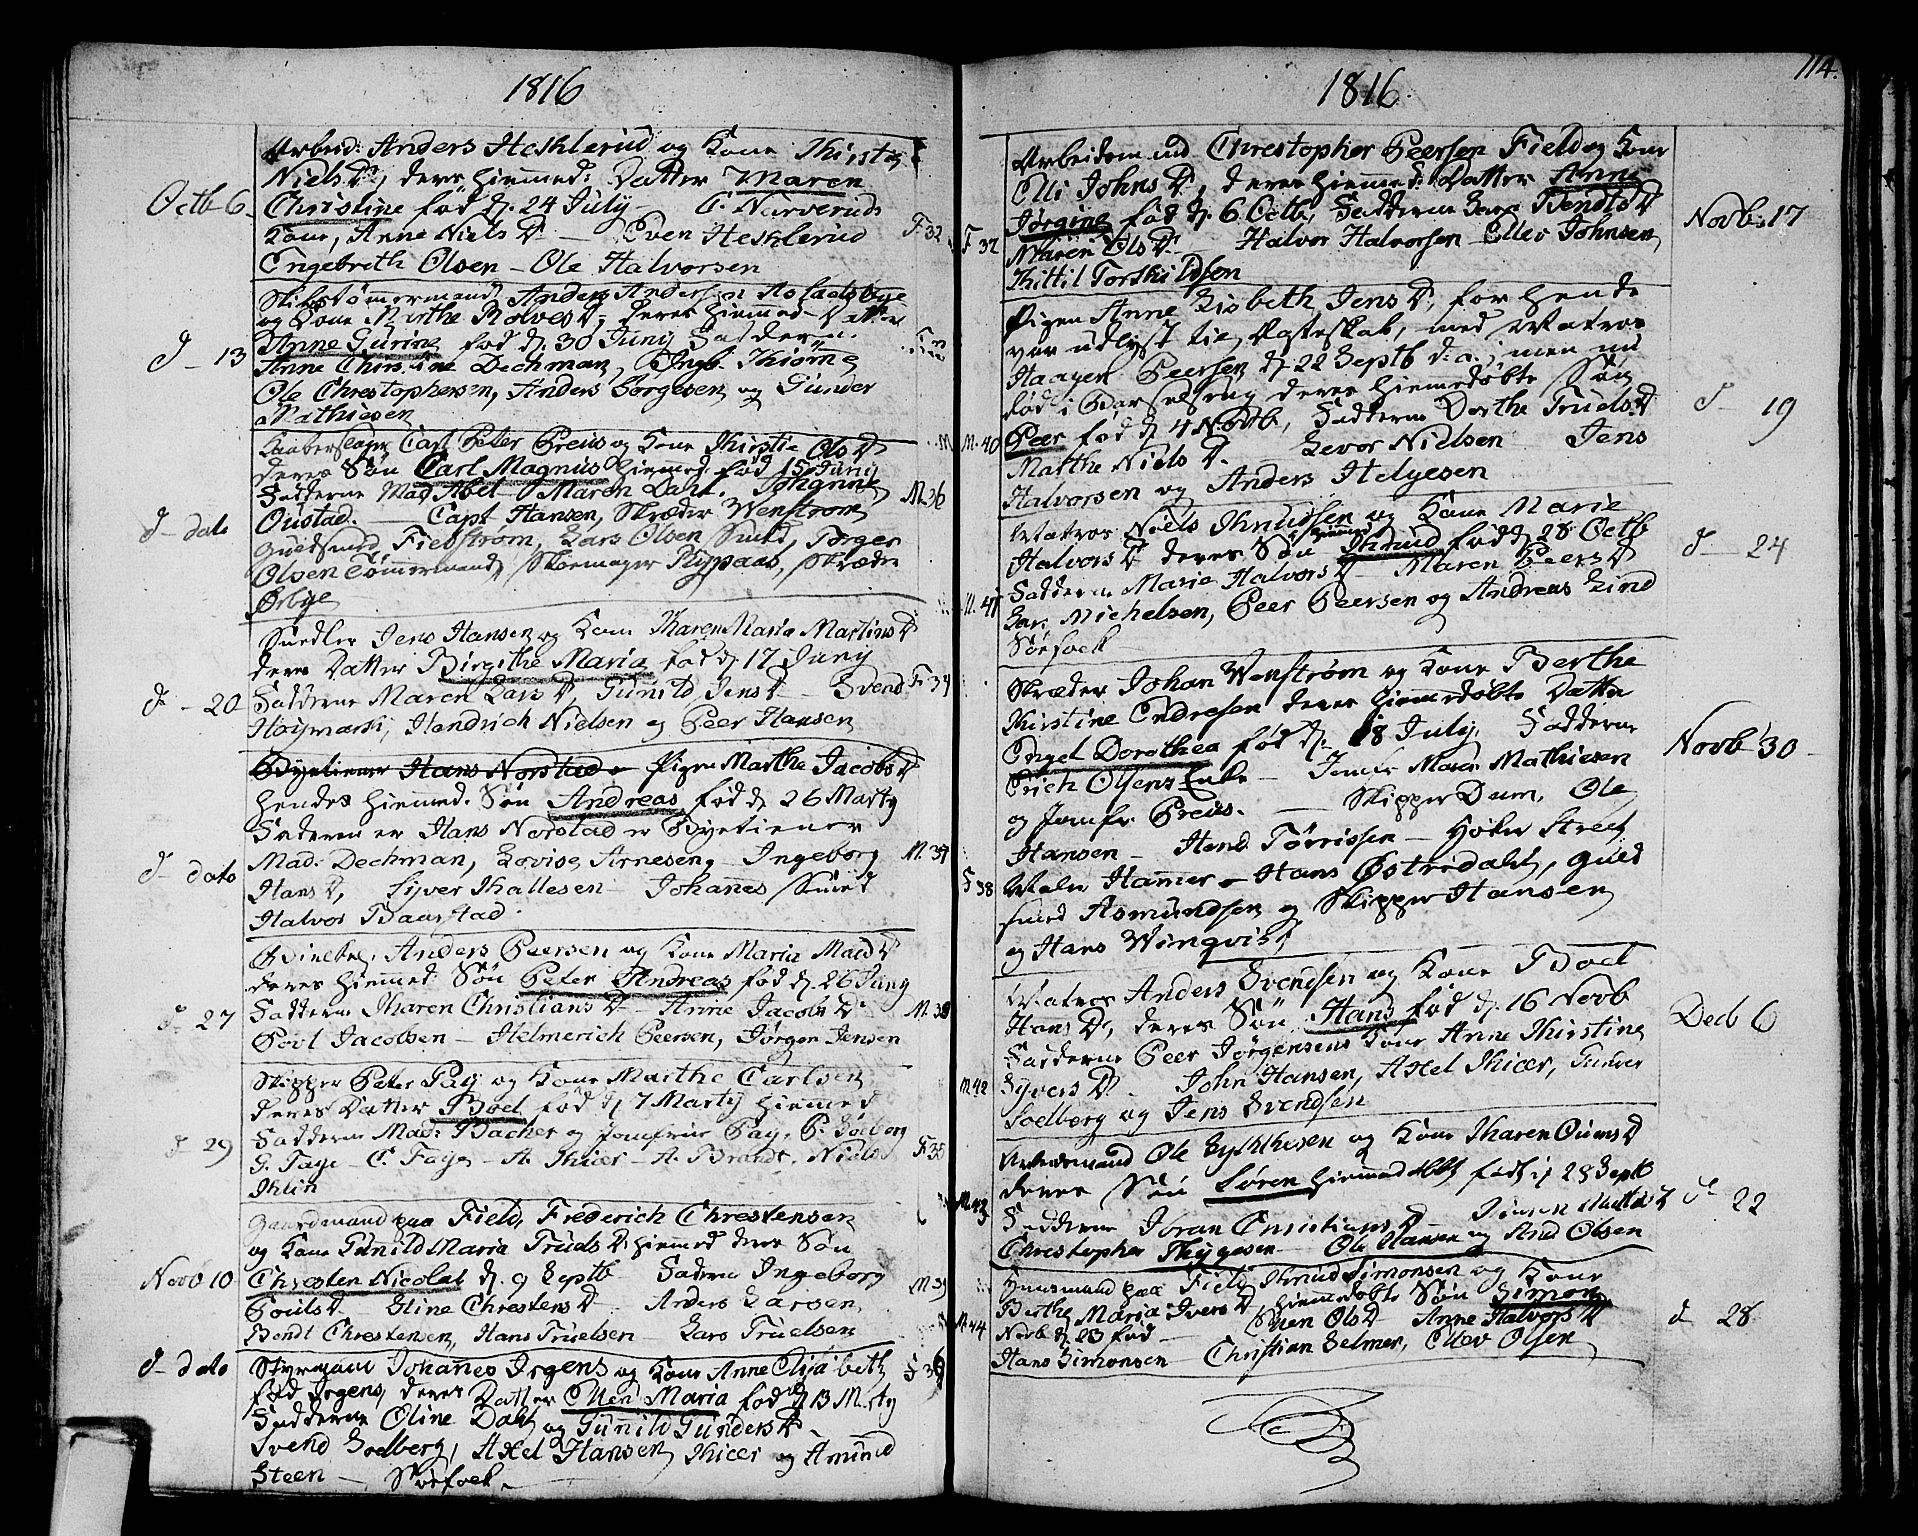 1816
Arbeid: Anders Hesklerud og Kone Kirstie
Niels D., deres hiemmed: Datter Maren
Octb 6. Christine fød d. 24 July — C. Narverud
Kone, Anne Niels D. — Even Hesklerud F 32
Engebreth Olsen — Ole Halvorsen
Skibstømmermand Anders Andersen
og Kone Marthe Rolves D., deres hiemmed Datter
Anne Gurine fød d. 30 Juny Fadderne
d — 13 Anne Christine Dechman, Ingb. Thiøme
Ole Chrestophersen, Anders Børgesen og Gunder
Mathiesen
Carl Peter Preus og Kone Kirstie Ols D.
deres Søn Carl Magnus hiemmed. fød 15 Juny
Fadderne Mad. Abel — Maren Dahl. Johanne M. 36
d — dato Oustad. — Capt Hansen, Skræder Wenstrøm
Guldsmed Fieldstrøm, Lars Olsen Smed, Torger
Olsen Tømmermand, Skoemager Rypaas, Skræder
Ørbye
Snedker Jens Hansen og Kone Karen Maria Martins D.
deres Datter Birgithe Maria fød d. 17 Juny
d — 20 Fadderne Maren Lars D., Gunild Jens D. — Svend F. 34
Høymark, Hendrich Nielsen og Peer Hansen
Byetiener Hans Norstad o Pigen Marthe Jacobs D.
hendes hiemmed. Søn Andreas fød d. 26 Marty
Faderen er Hans Norstad er Byetiener
d — dato Mad. Dechman, Lovise Arnesen, — Ingeborg M. 37
Hans D., Syver Kallesen — Johannes Smed
Halvor Baarstad.
Anders Peersen og Kone Maria Mads D.
deres hiemmed Søn Peter Andreas fød d. 26 Juny
d — 27 Fadderne Karen Christians D. — Anne Jacobs D. M. 38
Povl Jacobsen — Helmerich Peersen, Jørgen Jensen
Skipper Peter Pay og Kone Marthe Carlsen
deres Datter Boel fød d. 7 Marty hiemmed
d — 29 Fadderne Mad: Bacher og Jomfrue Pay, P. Søeberg F. 35
G. Faye — C. Faye — A. Kiær — A. Brandt. Niels
Klin
Gaardmand paa Field, Frederich Chrestensen
og Kone Gunild Maria Truls D. hiemmed deres Søn
Novb 10 Chresten Nicolai d. 9 Septb Fadderne Ingeborg M 39
Pouls D. — Eline Chrestens D. — Anders Larsen,
Bendt Chrestensen, Hans Truelsen — Lars Truelsen
d — dato Styrmand Johannes Irgens og Kone Anne Elisabeth F 36
fød Irgens, deres Datter Ellen Maria fød d. 13 Marty
Fadderne Oline Dahl og Gunild Gunders D.
Svend Soelberg, Axel Hansen Kiær og Amund
Steen — Sørfoek
1816
114.
Arbeidsmand Chrestopher Peersen Field og Kone
Elli Johns D., deres hiemmed: Datter Anne
F 37 Jørgine fød d. 6 Octb, Fadderne Sara Bendts D. Novb. 17
Maren Ols D. — Halvor Halvorsen — Ellev Johnsen
Kittil Torskildsen
Pigen Anne Lisbeth Jens D. for hende
var udlyst til Ægteskab, med Matros
Haagen Peersen d. 22 Septb d. a. ; men nu
død i Barselseng deres hiemmedøbte Søn
M. 40 Peer fød d. 4 Novb, Fadderne Dorthe Truels D. d — 19
Marthe Niels D. — Levor Nielsen Jens
Halvorsen og Anders Helgesen
Matros Niels Knudsen og Kone Marie
Halvors D. deres Søn hiemmed Knud fød d. 28 Octb
Fadderne Marie Halvors D. — Maren Peers D. d — 24
M. 41 Lars Michelsen, Peer Peersen og Andreas Lind
Sørfoek
Skræder Johan Wenstrøm og Kone Berthe
Kirstine Endresen deres hiemmedøbte Datter
Engel Dorothea fød d. 18 July. Fadderne
Erich Olsens Enke — Jomfr Maren Mathiesen Novb 30
og Jomfr. Preus. — Skipper Dum, Ole
Hansen — Hend. Tørrissen — Høker Streed
F 38 Maler Hammer — Hans Østerdahl, Guld
smed Asmundsen og Skipper Hansen
og Hans Winqvist
Matros Anders Svendsen og Kone Boel
Hans D., deres Søn Hans fød d. 16 Novb
Fadderne Peer Jørgensens Kone Anne Kirstine Decb 6
M. 42 Syvers D. John Hansen, Axel Kiær, Gunder
Soelberg og Jens Svendsen
Arbeidsmand Ole Gythesen og Kone Karen Ouns D.
deres Søn Søren hiemmedøbt fød d. 28 Septb
M. 43 Fadderne Joran Christians D. — d — 22
Christopher Thygesen — Ole Hansen og And Olsen
Huusmand paa Field Knud Simonsen og Kone
Berthe Maria Ivers D. hiemmedøbte Søn Simon
M. 44 Novb d. 23 fød — Ellen Ols D. Anne Halvors D. d — 28
Hans Simonsen — Christian Selmer, Ellev Olsen